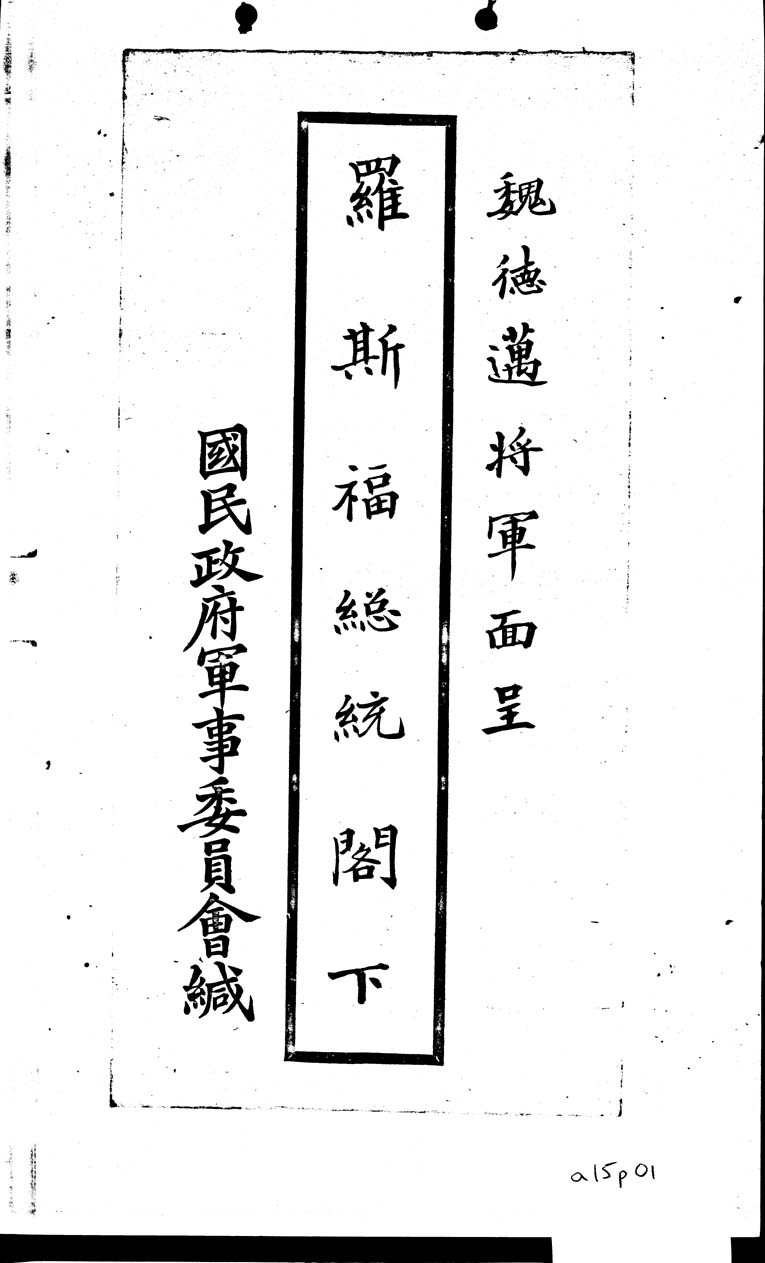 魏徳邁将軍面呈
羅斯福総統閣下
國民政府軍事委員會緘
a15p01